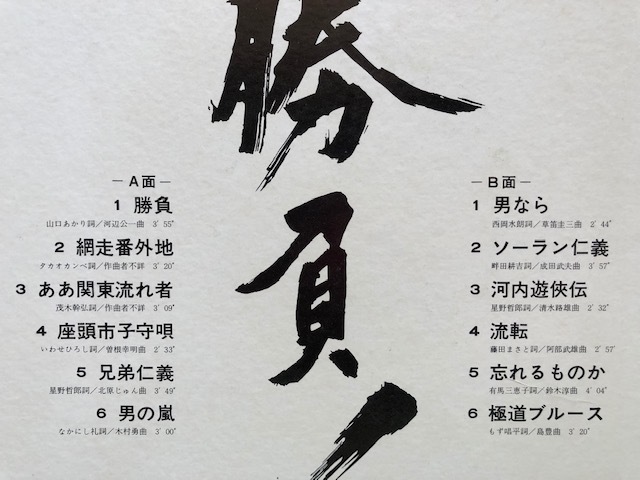 勝負！
―A面―
1 勝負
山口あかり詞／河辺公一曲 3′55″
2 網走番外地
タカオカンベ詞／作曲者不詳 3′20″
3 ああ関東流れ者
茂木幹弘詞／作曲者不詳 3′09″
4 座頭市子守唄
いわせひろし詞／曽根幸明曲 2′33″
5 兄弟仁義
星野哲郎詞／北原じゅん曲 3′49″
6 男の嵐
なかにし礼詞／木村勇曲 3′00″
―B面―
1 男なら
西岡水朗詞／草笛圭三曲 2′44″
2 ソーラン仁義
畔田耕吉詞／成田武夫曲 3′57″
3 河内遊侠伝
星野哲郎詞／清水路雄曲 2′32″
4 流転
藤田まさと詞／阿部武雄曲 2′57″
5 忘れるものか
有馬三恵子詞／鈴木淳曲 4′04″
6 極道ブルース
もず唱平詞／島豊曲 3′20″